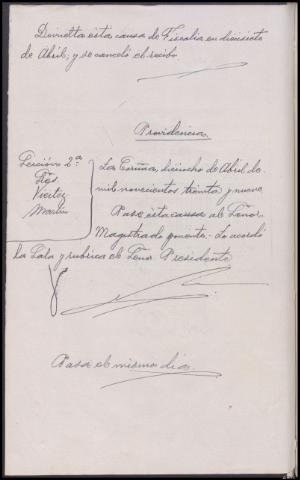 Devuelta esta causa de Fiscalía en diecisiete
de Abril; y se canceló el recibo
Providencia
Sección 2ª
Sres.
Vieitez
Martín
La Coruña, dieciocho de Abril de
mil novecientos treinta y nueve
Pase esta causa al Señor
Magistrado ponente.- Lo acordó
la Sala y rubrica el Señor Presidente
Pasa el mismo dia.